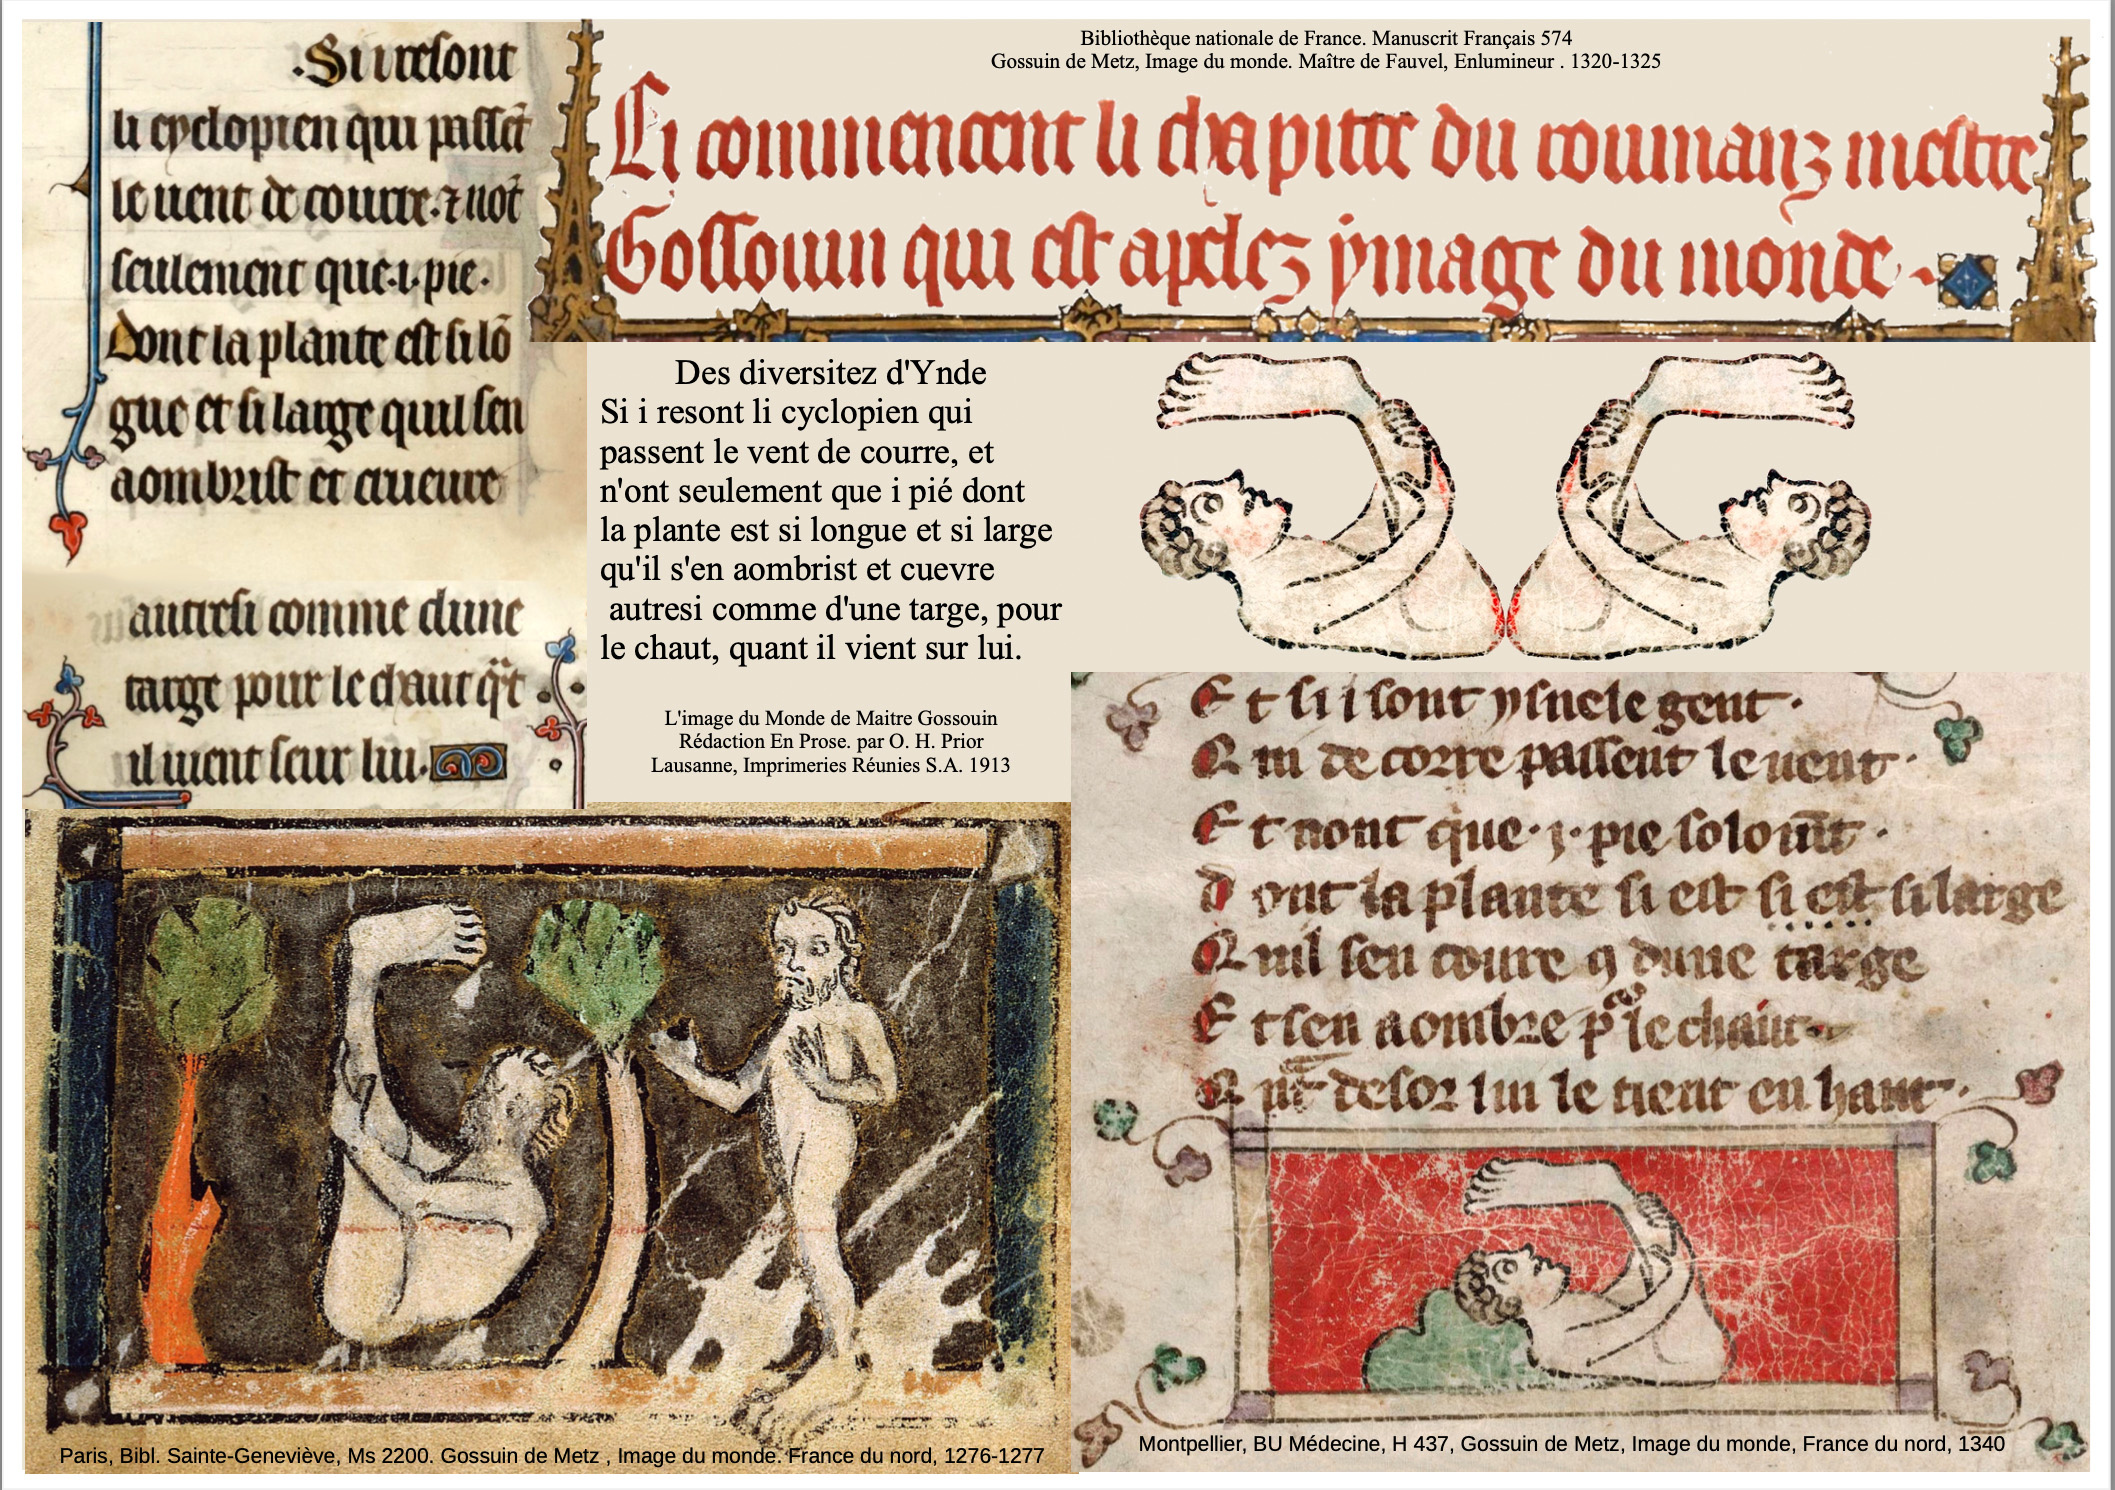 .Si i resont
li cyclopien qui passēt
le uent de courre. ⁊ nōt
seulement que .i. pie.
dont la plante est si lō
gue et si large quil sen
aombrist et cueuure
autresi comme dune
targe pour le chaut q̄t
il uient seur lui.
Bibliothèque nationale de France. Manuscrit Français 574
Gossuin de Metz, Image du monde. Maître de Fauvel, Enlumineur . 1320-1325
Ci commencent li chapitre du roumanz mestre
Gossouin qui est apelez ymage du monde.
Des diversitez d'Ynde
Si i resont li cyclopien qui
passent le vent de courre, et
n'ont seulement que i pié dont
la plante est si longue et si large
qu'il s'en aombrist et cuevre
autresi comme d'une targe, pour
le chaut, quant il vient sur lui.
L'image du Monde de Maitre Gossouin
Rédaction En Prose. par O. H. Prior
Lausanne, Imprimeries Réunies S.A. 1913
Et si i sont ysnele gent.
Qui de corre passent le uent.
Et nont que .j. pie solomt̄.
dont la plante si est si est si large
Quil sen coure ꝯ dune targe
Et sen aombre p le chaut
Qnt desor lui le tient en haut.
Paris, Bibl. Sainte-Geneviève, Ms 2200. Gossuin de Metz , Image du monde. France du nord, 1276-1277
Montpellier, BU Médecine, H 437, Gossuin de Metz, Image du monde, France du nord, 1340